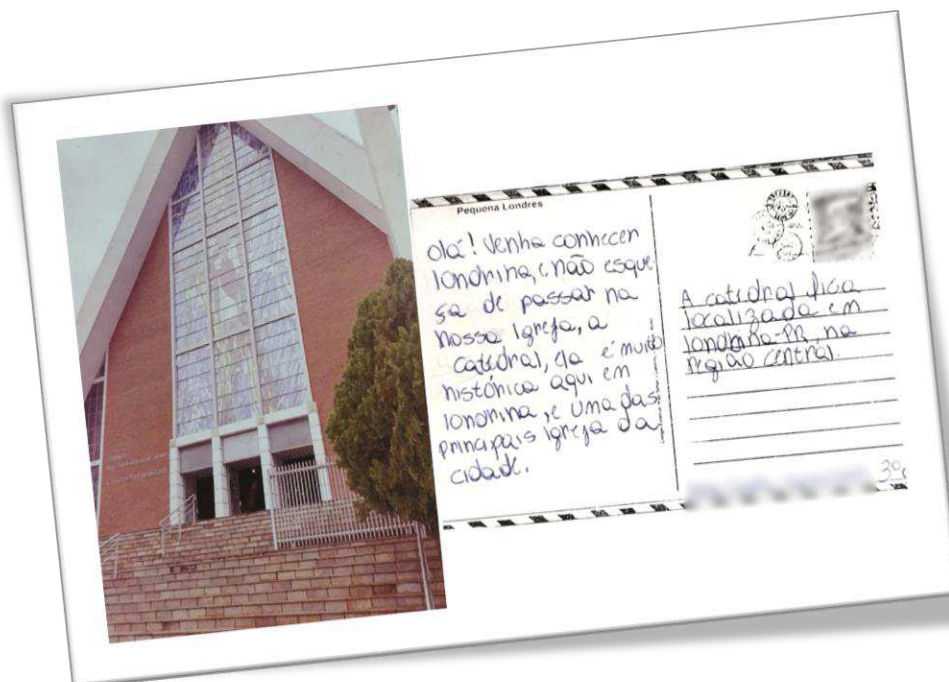 Pequena Londres
Olá! Venha conhecer
londrina, e não esque
sa de passar na
nossa Igreja, a
catedral, ela é muito
histórica aqui em
londrina, e uma das
principais igreja da
cidade.
A catedral fica
localizada em
londrina-PR, na
região central.